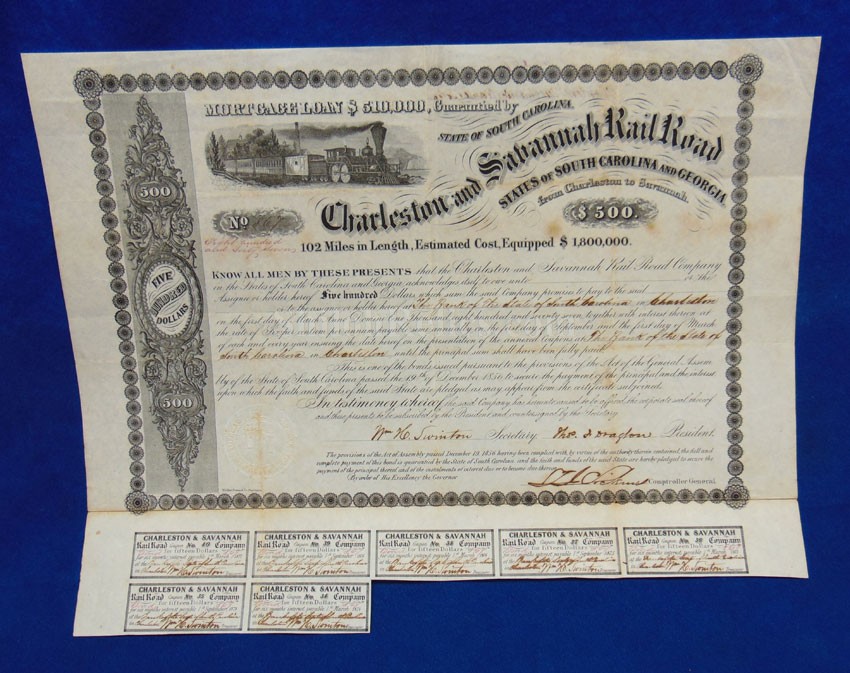 MORTGAGE LOAN $510,000, Guarantied by
STATE OF SOUTH CAROLINA
Charleston and Savannah Rail Road
STATES OF SOUTH CAROLINA AND GEORGIA
from Charleston to Savannah.
No
$500.
102 Miles in Length, Estimated Cost, Equipped $1,800,000.
500
FIVE
HUNDRED
DOLLARS
500
KNOW ALL MEN BY THESE PRESENTS that the Charleston and Savannah Rail Road Company
in the States of South Carolina and Georgia acknowledges itself to owe unto or the
Assignee or holder hereof Five hundred Dollars which sum the said Company promises to pay to the said
or to the assignee or holder hereof at The Bank of the State of South Carolina in Charleston
on the first day of March Anno Domini One Thousand eight hundred and seventy seven together with interest thereon at
the rate of Six per centum per annum payable semi annually on the first day of September and the first day of March
of each and every year ensuing the date hereof on the presentation of the annexed Coupons at The Bank of the State of
South Carolina in Charleston until the principal sum shall have been fully paid.
This is one of the bonds issued pursuant to the provisions of the Act of the General Assem
bly of the State of South Carolina passed the 19th of December 1856 to secure the payment of the principal and the interest
upon which the faith and funds of the said State are pledged as may appear from the certificate subjoined.
In testimony whereof the said Company has caused to be affixed the corporate seal thereof
and these presents to be subscribed by the President and countersigned by the Secretary
Wm H. Swinton Secretary. Tho. F. Drayton President.
The provisions of the Act of Assembly passed December 19, 1856 having been complied with, by virtue of the authority therein contained, the full and
complete payment of this bond is guarantied by the State of South Carolina, and the faith and funds of the said State are hereby pledged to secure the
payment of the principal thereof and of the instalments of interest due or to become due thereon.
By order of His Excellency the Governor
Comptroller General.
CHARLESTON & SAVANNAH
Rail Road Coupon No. 40 Company
for fifteen Dollars
Wm H. Swinton
CHARLESTON & SAVANNAH
Rail Road Coupon No. 39 Company
for fifteen Dollars
Wm H. Swinton
CHARLESTON & SAVANNAH
Rail Road Coupon Company
for fifteen Dollars
Wm H. Swinton
CHARLESTON & SAVANNAH
Rail Road Coupon Company
for fifteen Dollars
Wm H. Swinton
CHARLESTON & SAVANNAH
Rail Road Coupon Company
for fifteen Dollars
Wm H. Swinton
CHARLESTON & SAVANNAH
Rail Road Coupon Company
for fifteen Dollars
Wm H. Swinton
CHARLESTON & SAVANNAH
Rail Road Coupon Company
for fifteen Dollars
Wm H. Swinton